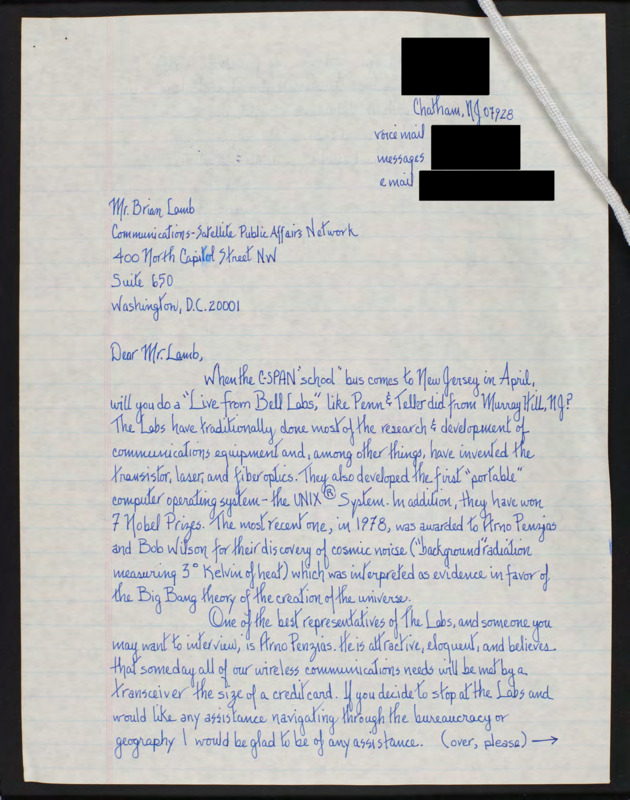 Chatham, NJ 07928
voice mail
messages
e mail
Mr. Brian Lamb
Communications-Satellite Public Affairs Network
400 North Capitol Street NW
Suite 650
Washington, D.C. 20001
Dear Mr. Lamb,
When the C-SPAN "school" bus comes to New Jersey in April,
will you do a "Live from Bell Labs," like Penn & Teller did from Murray Hill, NJ?
The Labs have traditionally done most of the research & development of
communications equipment and, among other things, have invented the
transistor, laser, and fiber optics. They also developed the first "portable"
computer operating system - the UNIX® System. In addition, they have won
7 Nobel Prizes. The most recent one, in 1978, was awarded to Arno Penzias
and Bob Wilson for their discovery of cosmic noise ("background" radiation
measuring 3° Kelvin of heat) which was interpreted as evidence in favor of
the Big Bang theory of the creation of the universe.
One of the best representatives of The Labs, and someone you
may want to interview, is Arno Penzias. He is attractive, eloquent, and believes
that someday all of our wireless communications needs will be met by a
transceiver the size of a credit card. If you decide to stop at the Labs and
would like any assistance navigating through the bureaucracy or
geography I would be glad to be of any assistance. (over, please) →